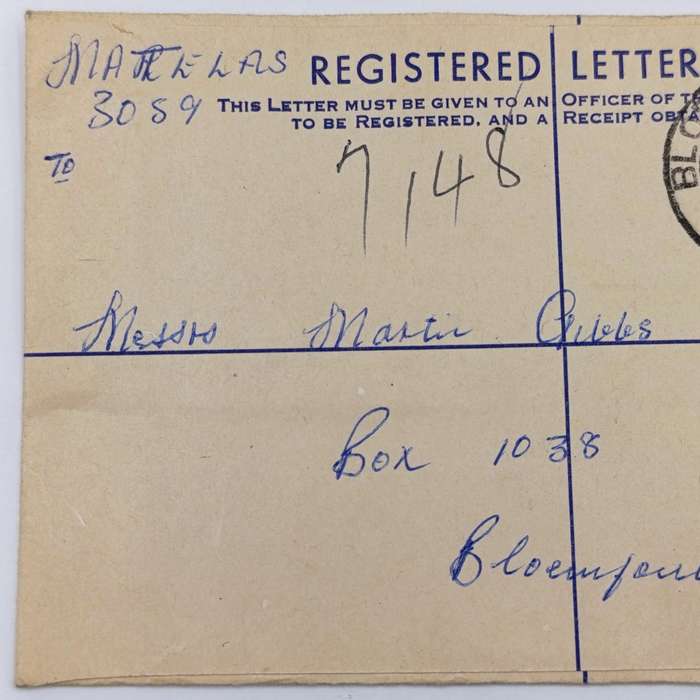 MATHELAS REGISTERED LETTER
3059 THIS LETTER MUST BE GIVEN TO AN OFFICER OF
TO BE REGISTERED, AND A RECEIPT
TO
7148
BLO
Messrs Martin Gibbs
Box 1038